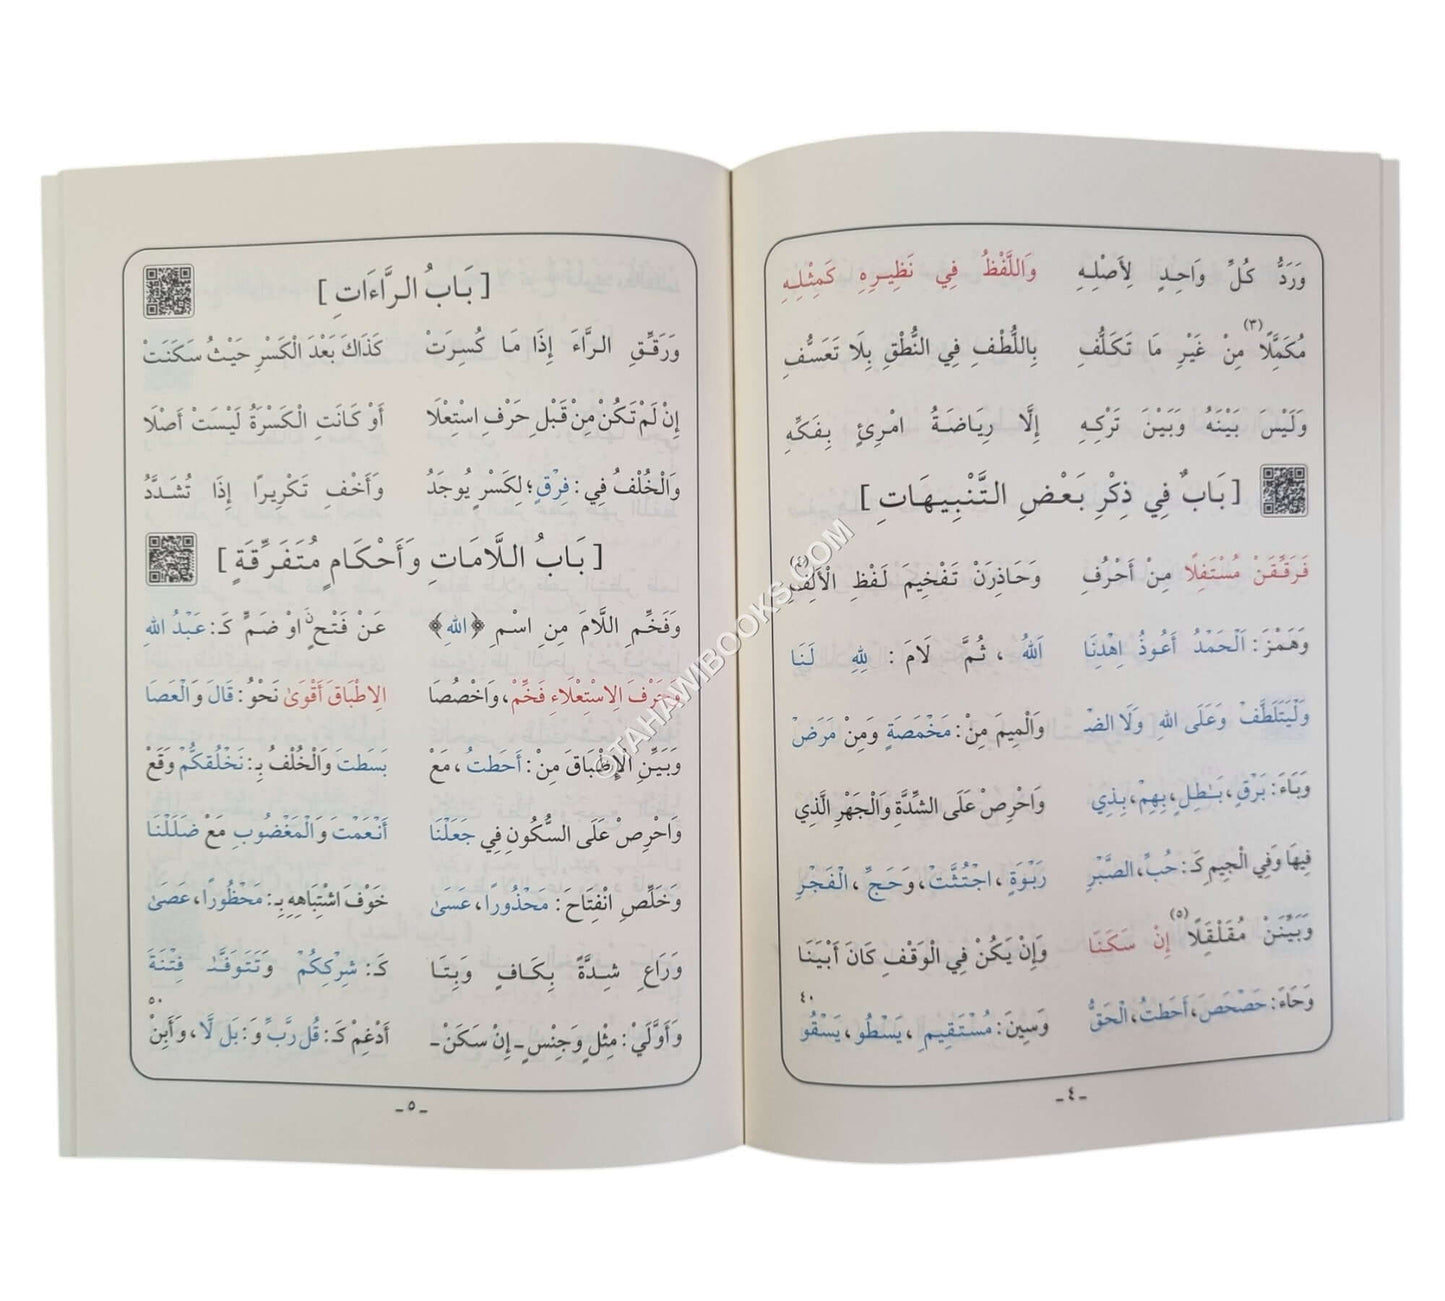 وَرَدُّ كُلِّ وَاحِدٍ لِأَصْلِهِ وَاللَّفْظُ فِي نَظِيرِهِ كَمِثْلِهِ
مُكَمَّلًا(٣) مِنْ غَيْرِ مَا تَكَلُّفِ بِاللُّطْفِ فِي النُّطْقِ بِلَا تَعَسُّفِ
وَلَيْسَ بَيْنَهُ وَبَيْنَ تَرْكِهِ إِلَّا رِيَاضَةُ امْرِئٍ بِفَكِّهِ
[بَابٌ فِي ذِكْرِ بَعْضِ التَّنْبِيهَاتِ]
فَرَقِّقَنْ مُسْتَفِلًا مِنْ أَحْرُفِ وَحَاذِرَنْ تَفْخِيمَ لَفْظِ الْأَلِفِ(٤)
وَهَمْزَ: اَلْحَمْدُ أَعُوذُ اِهْدِنَا اَللهُ، ثُمَّ لَامَ: لِلهِ لَنَا
وَلْيَتَلَطَّفْ وَعَلَى اللهِ وَلَا الضْ وَالْمِيمَ مِنْ: مَخْمَصَةٍ وَمِنْ مَرَضْ
وَبَاءَ: بَرْقٍ، بَـٰطِلٍ، بِهِمْ، بِذِي وَاحْرِصْ عَلَى الشِّدَّةِ وَالْجَهْرِ الَّذِي
فِيهَا وَفِي الْجِيمِ كَـ: حُبِّ، الصَّبْرِ رَبْوَةٍ، اجْتُثَّتْ، وَحَجِّ، الْفَجْرِ
وَبَيِّنَنْ مُقَلْقَلًا(٥) إِنْ سَكَنَا وَإِنْ يَكُنْ فِي الْوَقْفِ كَانَ أَبْيَنَا
وَحَاءَ: حَصْحَصَ، أَحَطتُ، الْحَقُّ وَسِينَ: مُسْتَقِيمِ، يَسْطُو، يَسْقُو ٤٠
ـ٤ـ
[بَابُ الرَّاءَاتِ]
وَرَقِّقِ الرَّاءَ إِذَا مَا كُسِرَتْ كَذَاكَ بَعْدَ الْكَسْرِ حَيْثُ سَكَنَتْ
إِنْ لَمْ تَكُنْ مِنْ قَبْلِ حَرْفِ اسْتِعْلَا أَوْ كَانَتِ الْكَسْرَةُ لَيْسَتْ أَصْلَا
وَالْخُلْفُ فِي: فِرْقٍ؛ لِكَسْرٍ يُوجَدُ وَأَخْفِ تَكْرِيرًا إِذَا تُشَدَّدُ
[بَابُ اللَّامَاتِ وَأَحْكَامٍ مُتَفَرِّقَةٍ]
وَفَخِّمِ اللَّامَ مِنِ اسْمِ ﴿اللهِ﴾ عَنْ فَتْحٍ اوْ ضَمٍّ كَـ: عَبْدُ اللهِ
وَحَرْفَ الِاسْتِعْلَاءِ فَخِّمْ، وَاخْصُصَا الِاطْبَاقَ أَقْوَىٰ نَحْوُ: قَالَ وَالْعَصَا
وَبَيِّنِ الْإِطْبَاقَ مِنْ: أَحَطتُ، مَعْ بَسَطتَ وَالْخُلْفُ بِـ: نَخْلُقكُّمْ وَقَعْ
وَاحْرِصْ عَلَى السُّكُونِ فِي جَعَلْنَا أَنْعَمْتَ وَالْمَغْضُوبِ مَعْ ضَلَلْنَا
وَخَلِّصِ انْفِتَاحَ: مَحْذُورًا، عَسَىٰ خَوْفَ اشْتِبَاهِهِ بِـ: مَحْظُورًا، عَصَىٰ
وَرَاعِ شِدَّةً بِكَافٍ وَبِتَا كَـ: شِرْكِكُمْ وَتَتَوَفَّىٰ فِتْنَةَ
وَأَوَّلَيْ: مِثْلٍ وَجِنْسٍ ـ إِنْ سَكَنْ ـ أَدْغِمْ كَـ: قُل رَّبِّ وَ: بَل لَّا، وَأَبِنْ ٥٠
ـ٥ـ
©TAHAWIBOOKS.COM